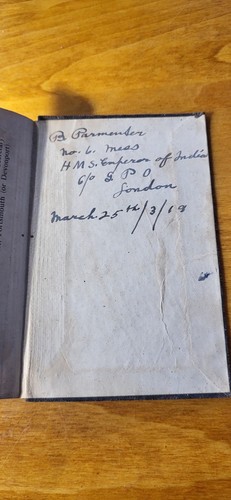 B Parmenter
no. 6. mess
H M S. Emperor of India
c/o G P O
London
March 25th/3/18
Portsmouth (or Devonport)